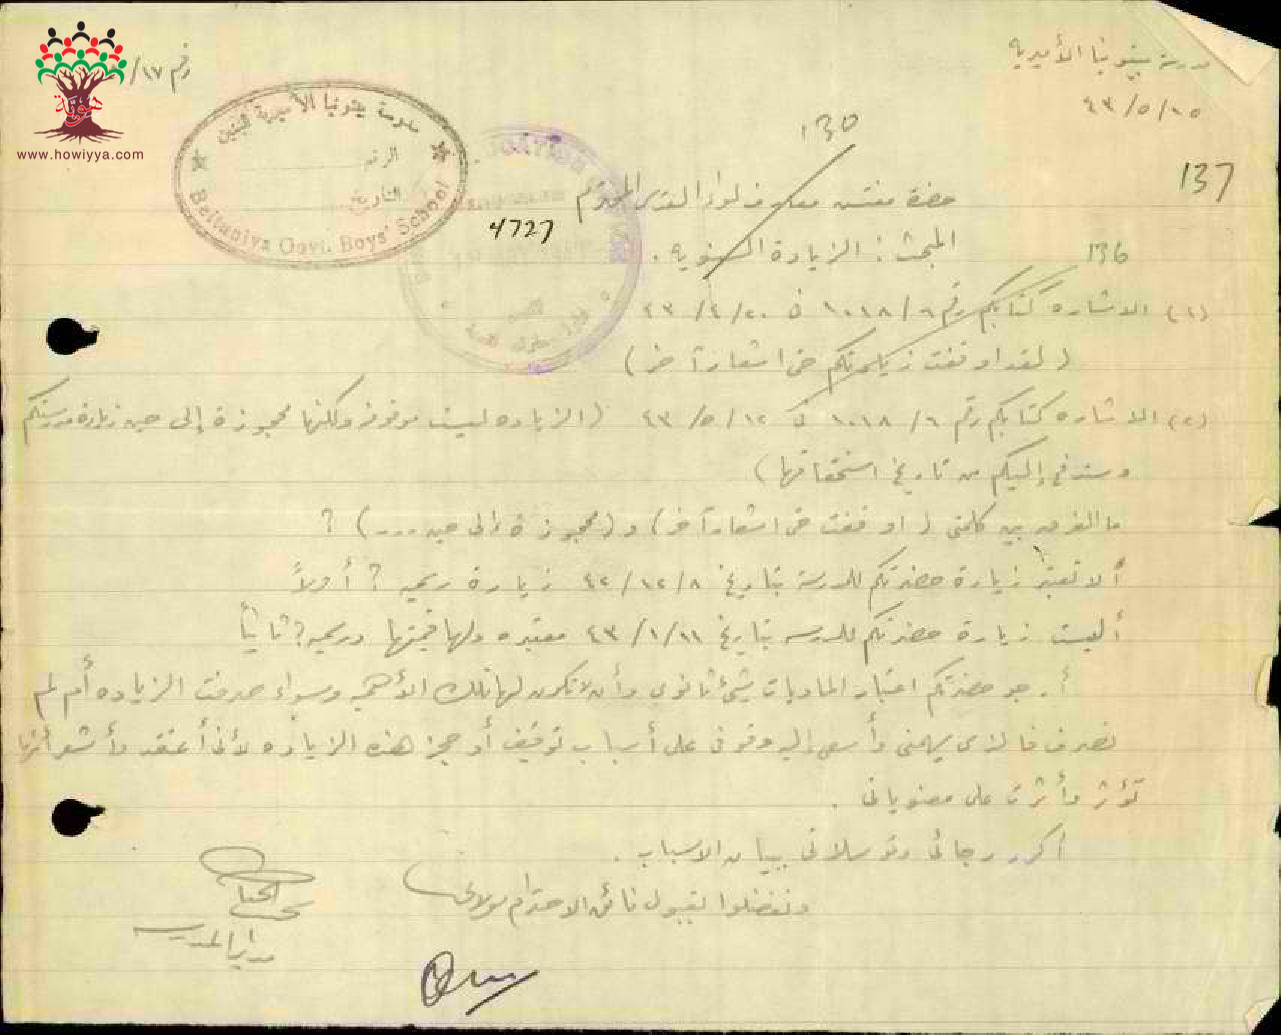 مدرسة بيتونيا الأميرية
٢٥/٥/٤٣
رقم ١٧/
www.howiyya.com
مدرسة بيتونيا الأميرية للبنين
الرقم
التاريخ
Beituniya Govt. Boys' School
130
137
4727
136
حضرة مفتش معارف لواء القدس المحترم
المبحث : الزيادة السنوية .
(١) الاشاره كتابكم رقم ٦/١٠١٨ في ٢٠/٤/٤٣
( لقد اوقفت زيادتكم حتى اشعار آخر )
(٢) الاشاره كتابكم رقم ٦/١٠١٨ في ١٢/٥/٤٣ (الزياده ليست موقوفه ولكنها محجوزة إلى حين زيارة مدرستكم
وستدفع إليكم من تاريخ استحقاقها)
ما الفرق بين كلمتي ( اوقفت حتى اشعار آخر ) و (محجوزة إلى حين ....) ؟
ألا تعتبر زيارة حضرتكم للمدرسة بتاريخ ٨/١٢/٤٢ زيارة رسميه ؟ أولاً
أليست زيارة حضرتكم للمدرسه بتاريخ ١١/١/٤٣ معتبره ولها قيمتها ورسميه ؟ ثانياً
أرجو حضرتكم اعتبار الماديات شيء ثانوي وأن لا تكون لها تلك الأهمية وسواء صرفت الزياده أم لم
تصرف فالذي يهمني وأسعى إليه وقوفي على أسباب توقيف أو حجز هذه الزياده لأني أعتقد وأشعر أنها
تؤثر وأثرت على معنوياتي .
أكرر رجائي وتوسلاتي ببيان الاسباب .
وتفضلوا بقبول فائق الاحترام مولاي
مدير المدرسه